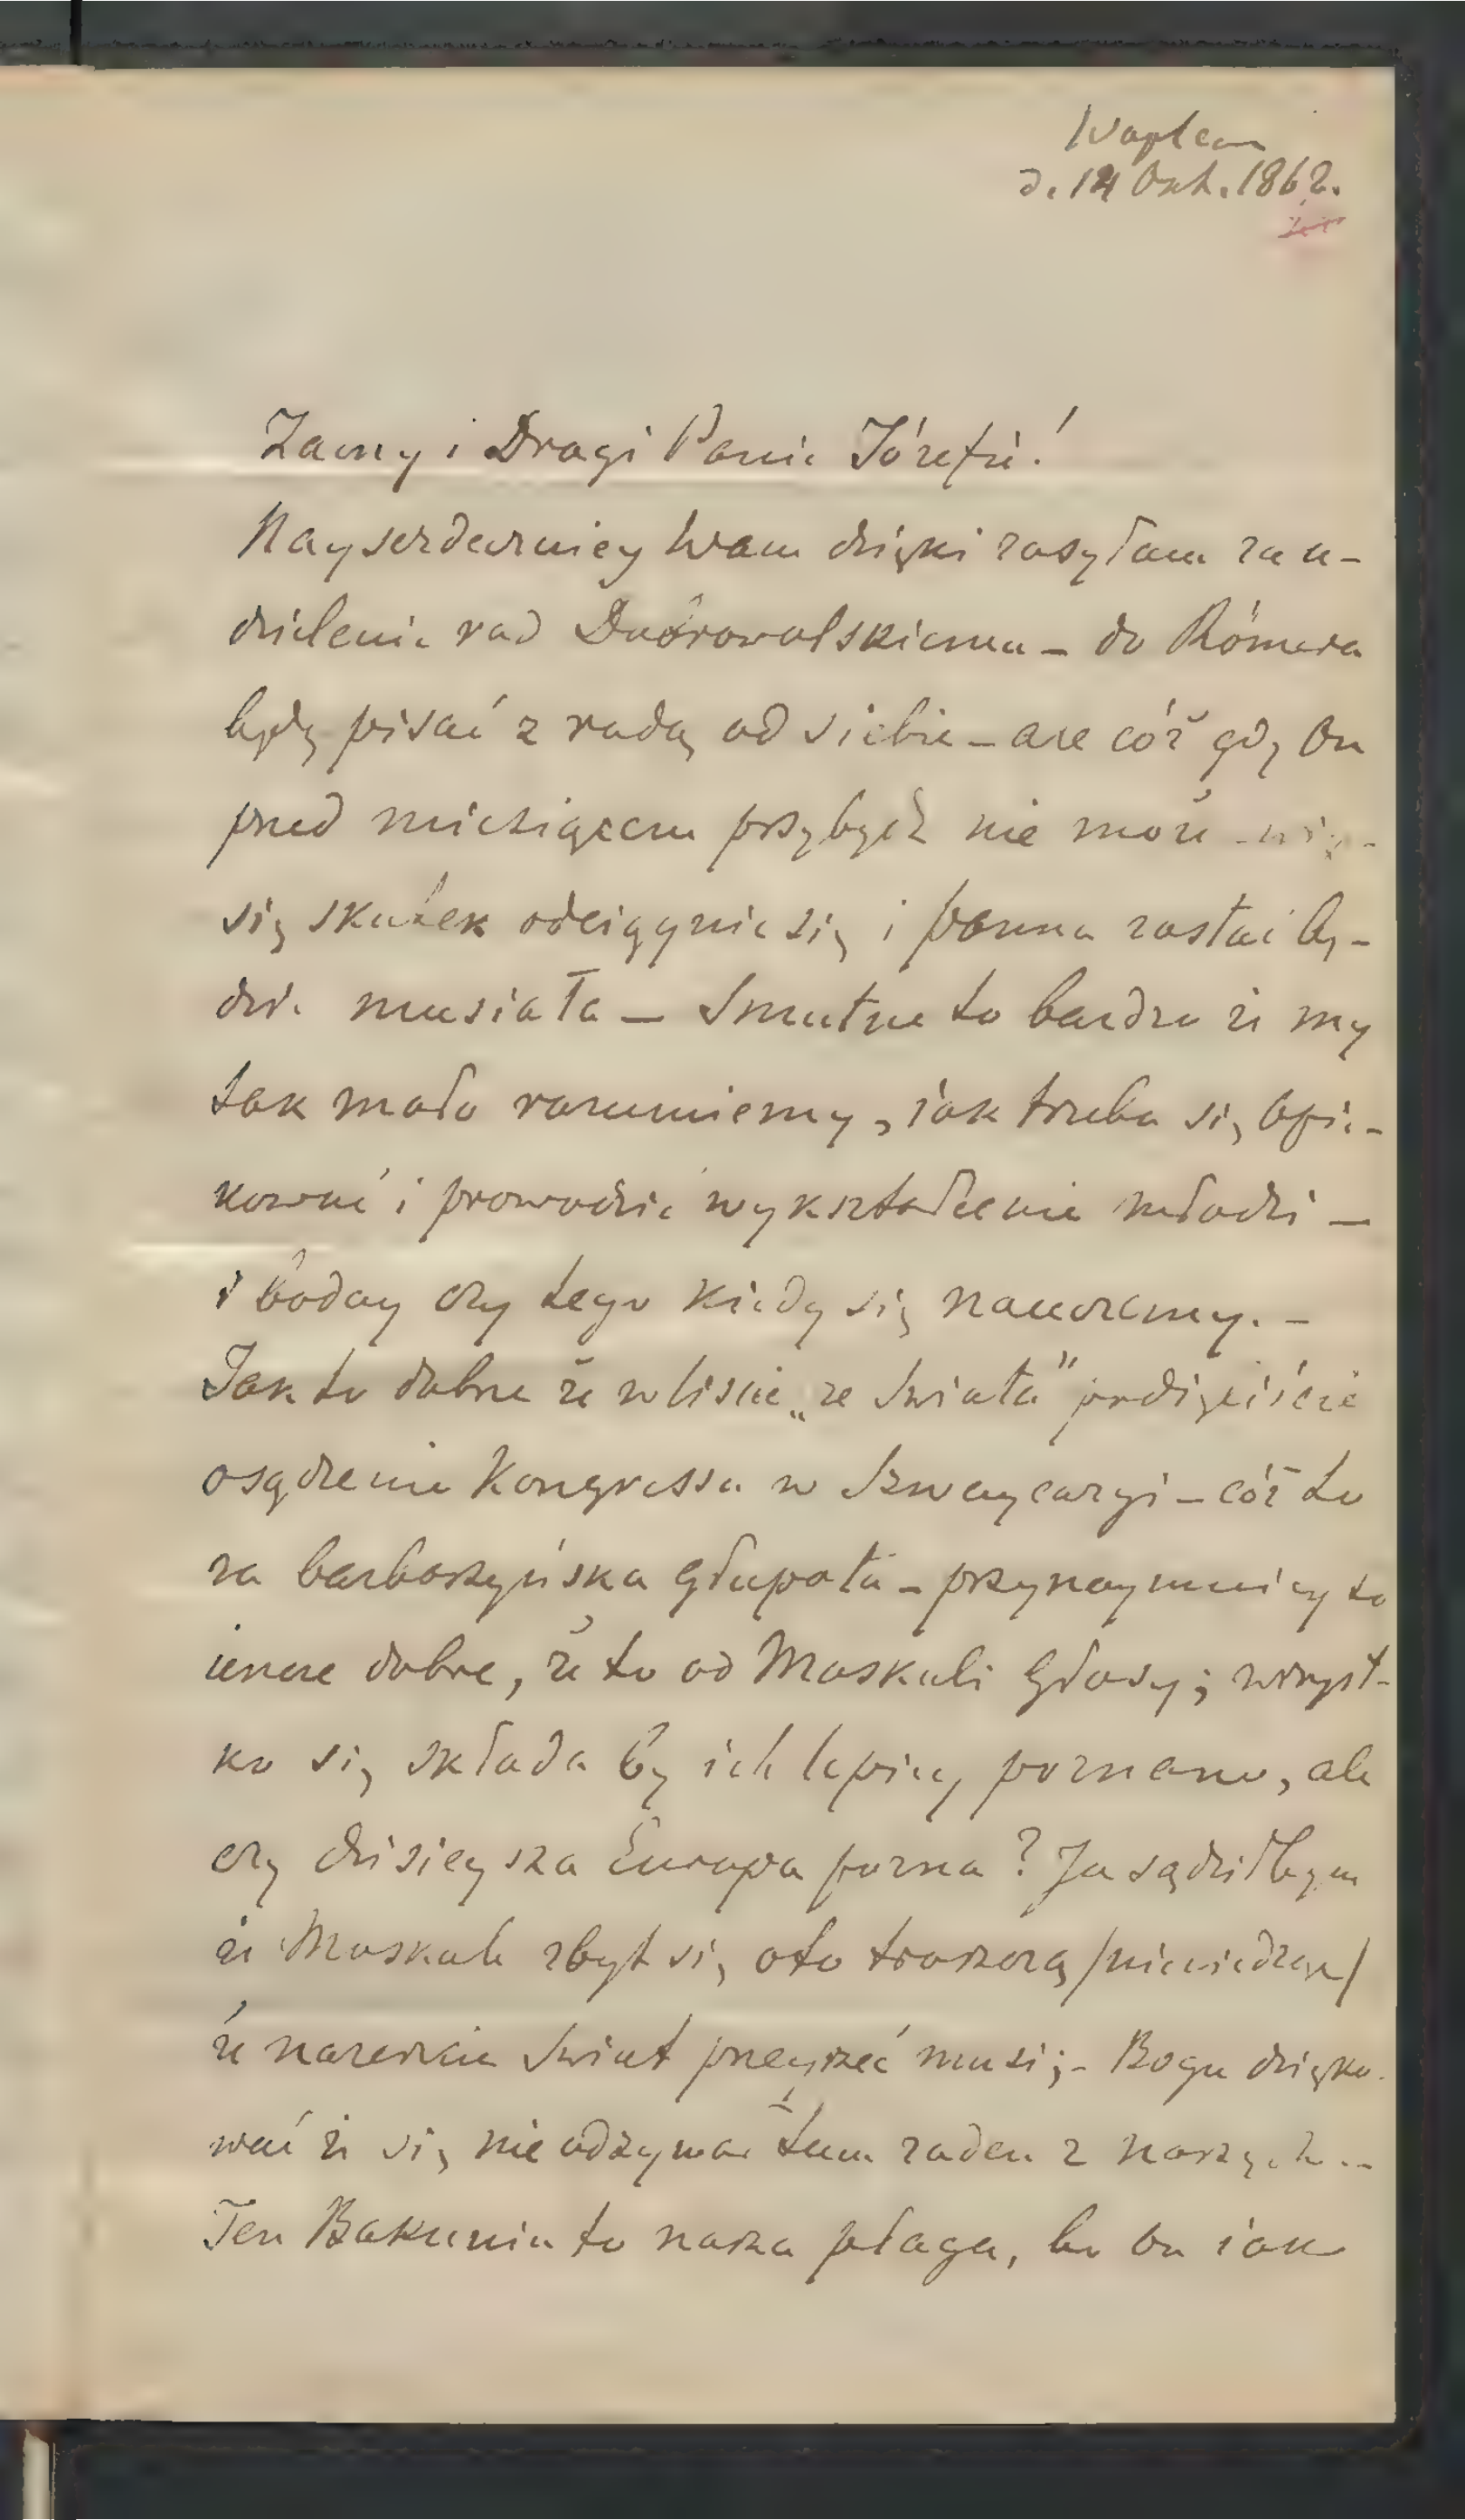 Waplewo
d. 14 Okt. 1862.
Zacny i Drogi Panie Józefie!
Nayserdeczniey Wam dzięki zasyłam za u-
dzielenie rad Dąbrowolskiemu – do Römera
będę pisać z radą od siebie – ale cóż gdy On
pred miesiącem przybydź nie może
się skutek odciągnie się i panna zostać bę-
dzie musiała – Smutne to bardzo że my
tak mało rozumiemy, iak trzeba się opie-
kować i prowadzić wykształcenie młodzi –
i boday czy tego kiedy się nauczemy. –
Jak to dobrze że w liscie „ze Swiata"
osądzenie Kongressu w Szwaycaryi – cóż to
za barbarzyńska głupota – przynaymniey to
iencze dobre, że to od Moskali głosy; wszyst-
ko się składa by ich lepiey poznano, ale
czy dzisieysza Europa pozna? Ja sądziłbym
że Moskale zbyt się o to troszczą /niewiedząc/
że nareszcie Swiat preyrzeć musi; – Bogu dzięko-
wać że się nie odzywał tam żaden z naszych ..
Ten Bakunin to nasza plaga, bo on iak